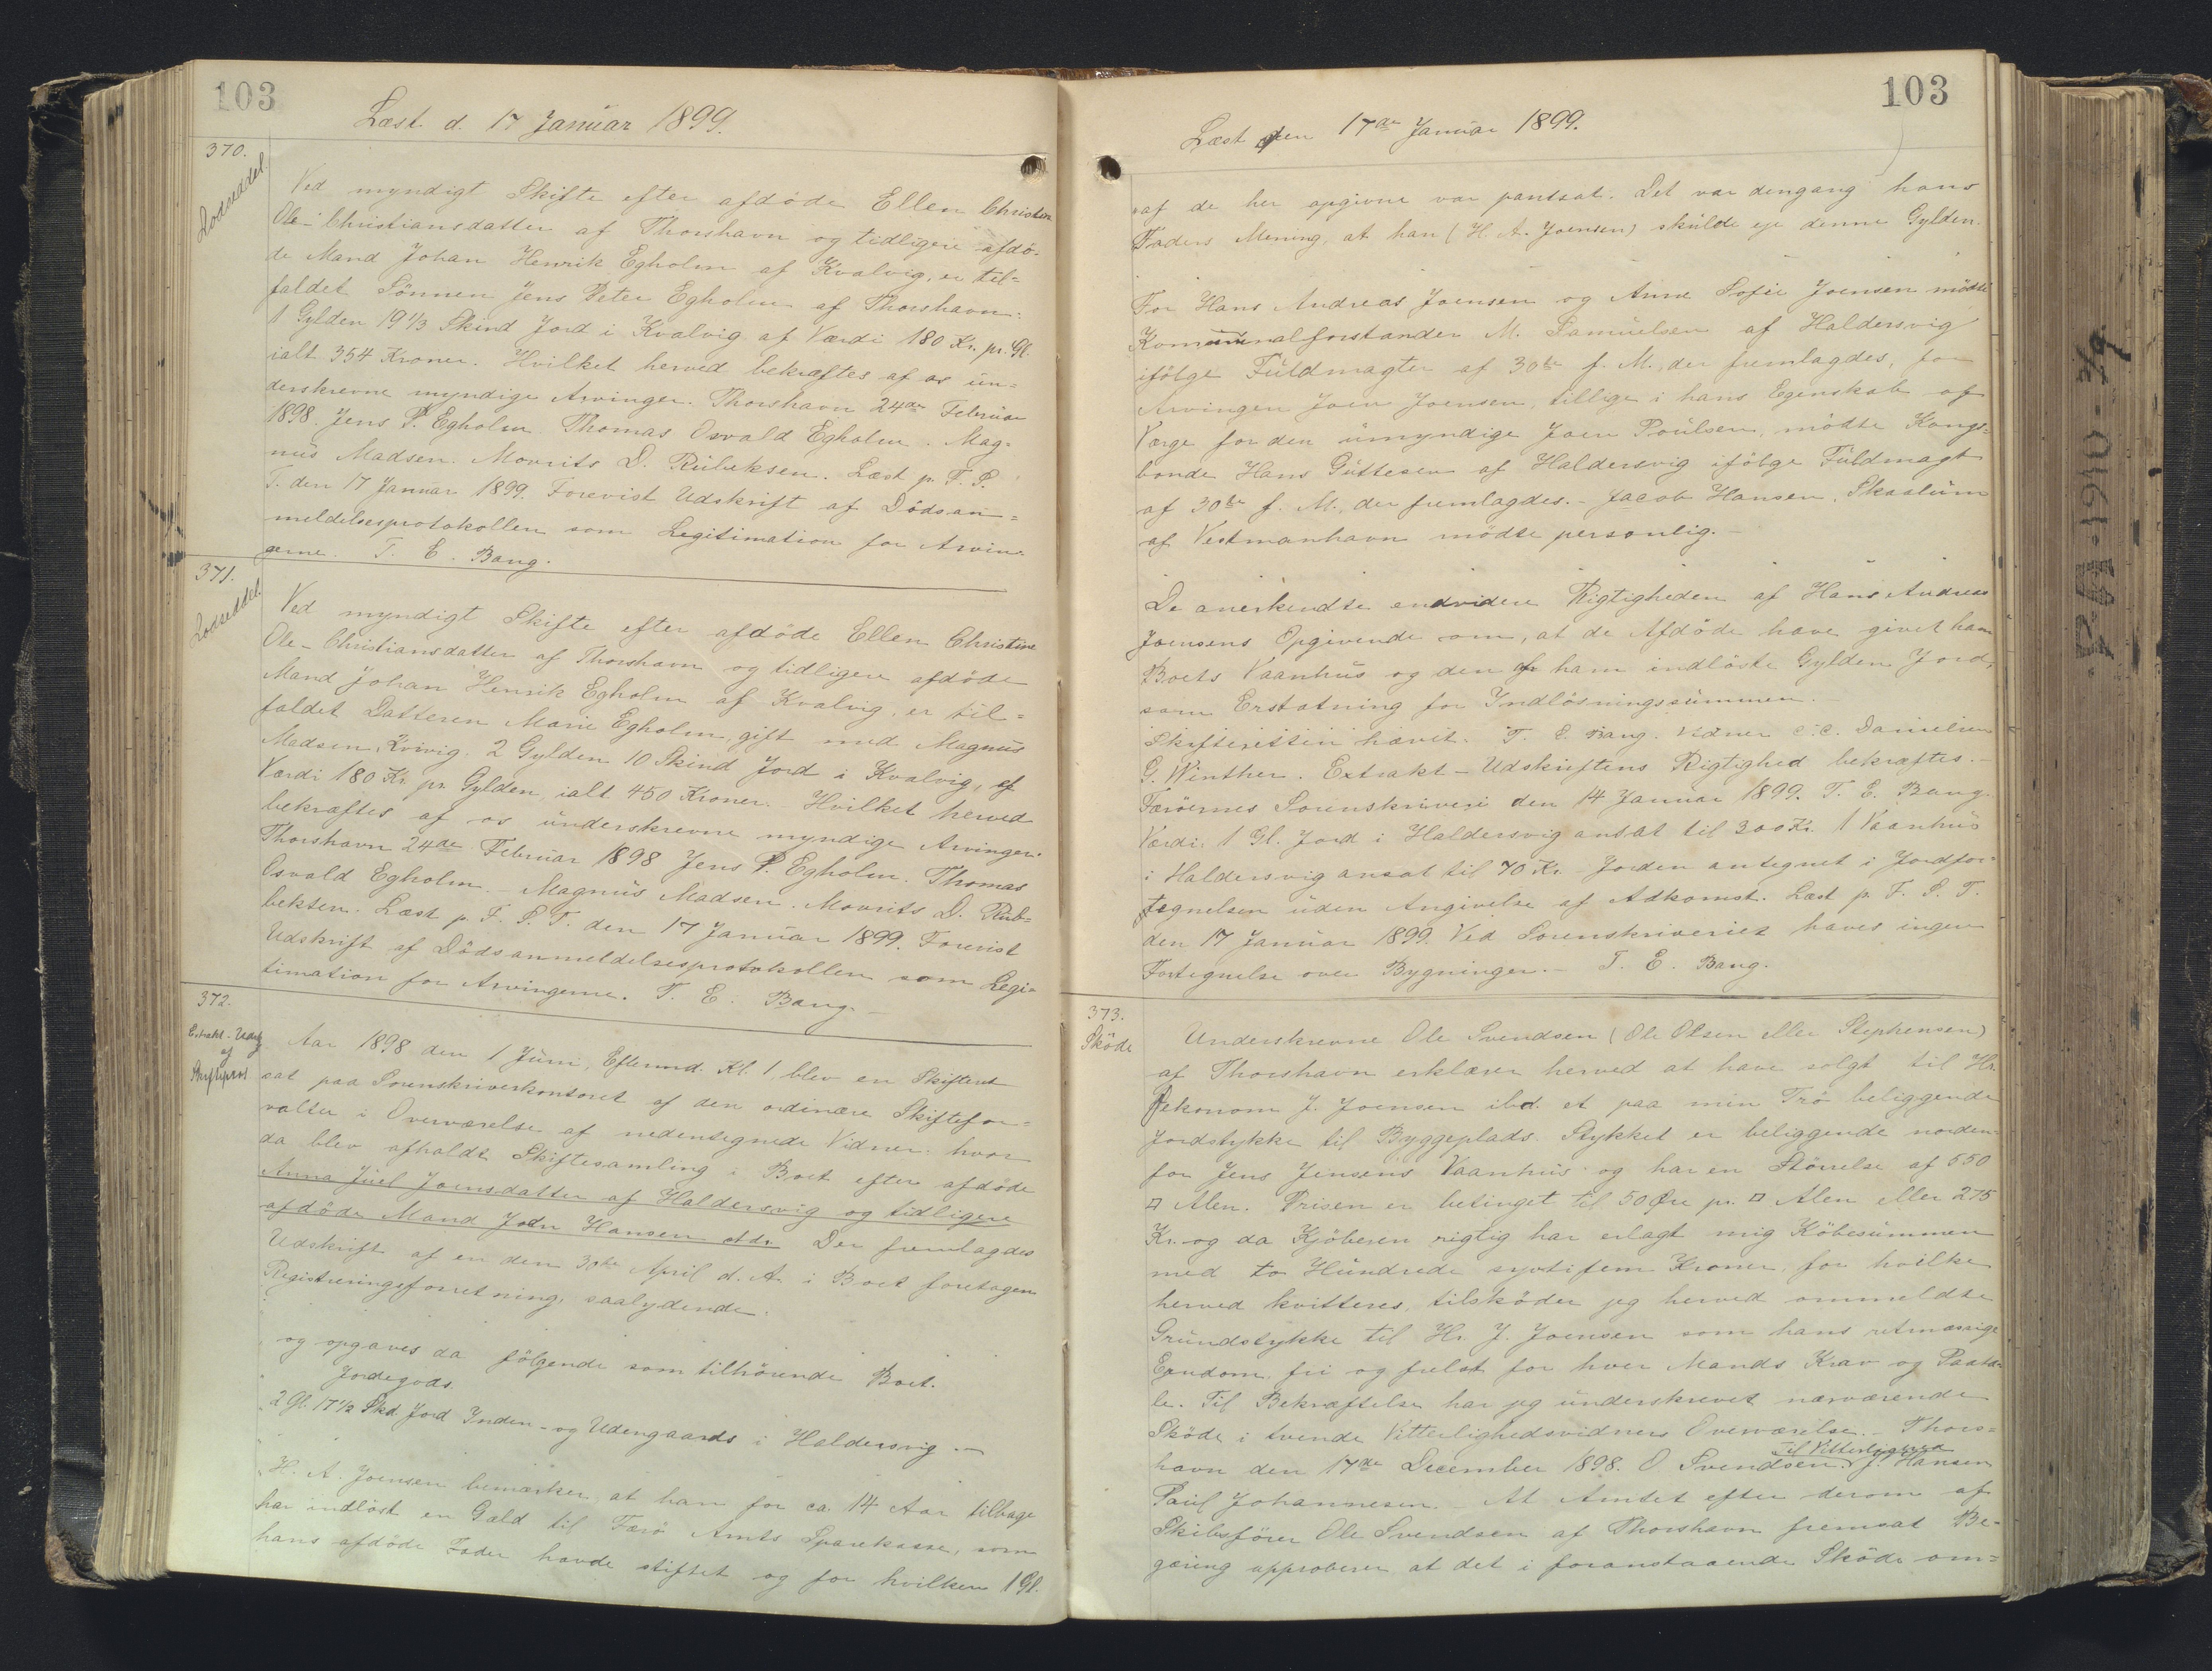 103
Læst d. 17 Januar 1899.
370.
Lodseddel
Ved myndigt Skifte efter afdöde Ellen Christine
Ole-Christiansdatter af Thorshavn og tidligere afdö-
de Mand Johan Henrik Egholm af Kvalvig, er til=
faldet Sönnen Jens Peter Egholm af Thorshavn:
1 Gylden 19 1/3 Skind Jord i Kvalvig af Værdi 180 Kr. pr. Gl.
ialt 354 Kroner. Hvilket herved bekræftes af os un=
derskrevne myndige Arvinger. Thorshavn 24de Februar
1898. Jens P. Egholm. Thomas Osvald Egholm. Mag-
nus Madsen. Mourits D. Rubeksen. Læst p. F. S.
T. den 17 Januar 1899. Forevist Udskrift af Dödsan=
meldelsesprotokollen som Legitimation for Arvin-
gerne. T. E. Bang.
371.
Lodseddel
Ved myndigt Skifte efter afdöde Ellen Christine
Ole-Christiansdatter af Thorshavn og tidligere afdöde
Mand Johan Henrik Egholm af Kvalvig, er til=
faldet Datteren Marie Egholm, gift med Magnus
Madsen, Kvivig. 2 Gylden 10 Skind Jord i Kvalvig, af
Værdi 180 Kr. pr. Gylden, ialt 450 Kroner. Hvilket herved
bekræftes af os underskrevne myndige Arvinger.
Thorshavn 24de Februar 1898 Jens P. Egholm. Thomas
Osvald Egholm. - Magnus Madsen. Mourits D. Rub=
beksen. Læst p. F. S. T. den 17 Januar 1899. Forevist
Udskrift af Dödsanmeldelsesprotokollen som Legi-
timation for Arvingerne. T. E. Bang. -
372.
Extrakt-Udskr
af
Skifteprot
Aar 1898 den 1 Juni, Eftermd. Kl. 1, blev en Skifteret
sat paa Sorenskriverkontoret af den ordinære Skiftefor=
valter i Overværelse af nedentegnede Vidner: hvor
da blev afholdt Skiftesamling i Boet efter afdöde
Anna Juel Joensdatter af Haldersvig og tidligere
afdöde Mand Joen Hansen etdr. Der fremlagdes
Udskrift af en den 30te April d. A. i Boet foretagen
Registreringsforretning, saalydende:
og opgaves da fölgende som tilhörende Boet.
Jordegods.
2 Gl. 17 1/2 Skd Jord Inden- og Udengaards i Haldersvig. -
H. A. Joensen bemærker, at han for ca. 14 Aar tilbage
har indlöst en Gæld til Færö Amts Sparekasse, som
hans afdöde Fader havde stiftet og for hvilken 1 Gl.
103
Læst den 17de Januar 1899.
af de her opgivne var pantsat. Det var dengang hans
Faders Mening, at han (H. A. Joensen) skulde eje denne Gylden.
For Hans Andreas Joensen og Anne Sofie Joensen mödte
Kommunalforstander M. Samuelsen af Haldersvig
ifölge Fuldmagter af 30te f. M., der fremlagdes, for
Arvingen Joen Joensen, tillige i hans Egenskab af
Værge for den umyndige Joen Poulsen, mödte Kongs=
bonde Hans Guttesen af Haldersvig ifölge Fuldmagt
af 30te f. M., der fremlagdes. - Jacob Hansen, Skaalum
af Vestmanhavn mödte personlig. -
De anerkendte endvidere Rigtigheden af Hans Andreas
Joensens Opgivende om, at de Afdöde have givet ham
Boets Vaanhus og den af ham indlöste Gylden Jord,
som Erstatning for Indlösningssummen.
Skifteretten hævet. T. E. Bang. Vidner C. C. Danielsen
G. Winther. Extrakt-Udskriftens Rigtighed bekræftes. -
Færöernes Sorenskriveri den 14 Januar 1899. T. E. Bang.
Værdi: 1 Gl. Jord i Haldersvig ansat til 300 Kr. 1 Vaanhus
i Haldersvig ansat til 70 Kr. Jorden antegnet i Jordfor=
tegnelsen uden Angivelse af Adkomst. Læst p. F. S. T.
den 17 Januar 1899. Ved Sorenskriveriet haves ingen
Fortegnelse over Bygninger. - T. E. Bang.
373.
Sköde
Underskrevne Ole Svendsen (Ole Olsen eller Stephensen)
af Thorshavn erklærer herved at have solgt til Hr.
Oekonom J. Joensen ibd. et paa min Trö beliggende
Jordstykke til Byggeplads. Stykket er beliggende norden=
for Jens Jensens Vaanhus og har en Störrelse af 550
□ Alen. Prisen er betinget til 50 Øre pr. □ Alen eller 275
Kr. og da Kjöberen rigtig har erlagt mig Köbesummen
med to Hundrede syvtifem Kroner, for hvilke
herved kvitteres, tilsköder jeg herved ommeldte
Grundstykke til Hr. J. Joensen som hans retmæssige
Ejendom fri og frelst for hver Mands Krav og Paata-
le. Til Bekræftelse har jeg underskrevet nærværende
Sköde i tvende Vitterlighedsvidners Overværelse. - Thors=
havn den 17de December 1898. O. Svendsen. Til Vitterlighed J. Hansen
Paul Johannesen. - At Amtet efter derom af
Skibsförer Ole Svendsen af Thorshavn fremsat Be-
gæring approberer at det i foranstaaende Sköde om=